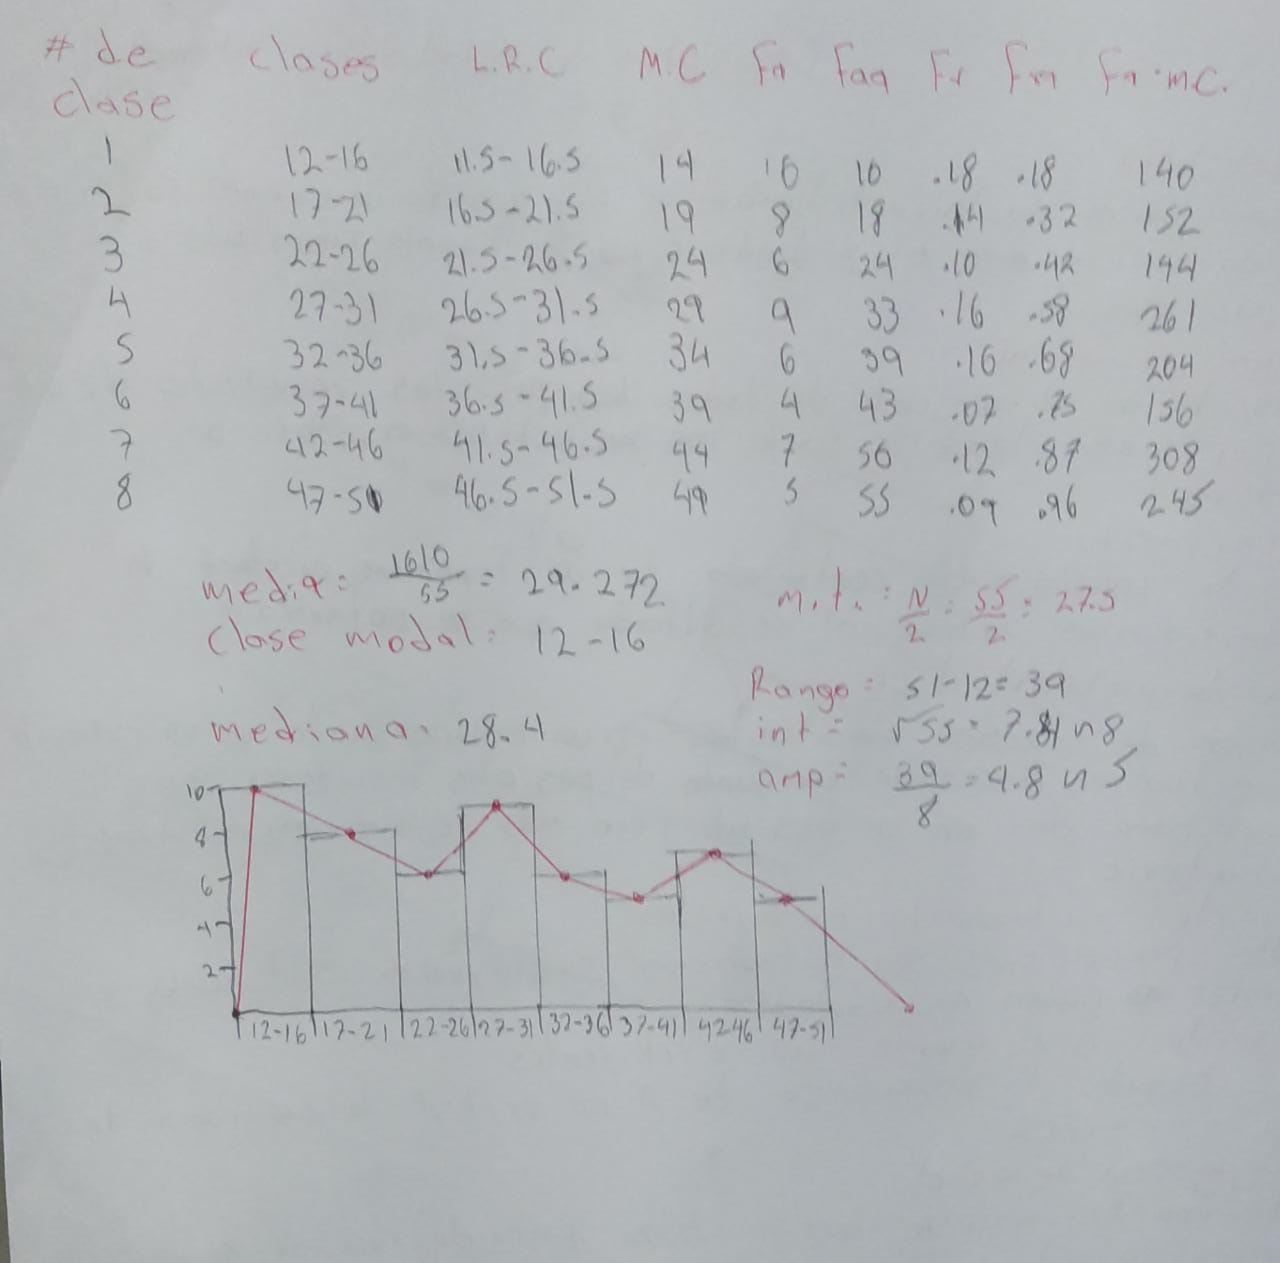 # de clase clases L.R.C M.C Fa Faa Fr Fra Fa·m.C.
1 12-16 11.5-16.5 14 10 10 .18 .18 140
2 17-21 16.5-21.5 19 8 18 .14 .32 152
3 22-26 21.5-26.5 24 6 24 .10 .42 144
4 27-31 26.5-31.5 29 9 33 .16 .58 261
5 32-36 31.5-36.5 34 6 39 .10 .68 204
6 37-41 36.5-41.5 39 4 43 .07 .75 156
7 42-46 41.5-46.5 44 7 50 .12 .87 308
8 47-51 46.5-51.5 49 5 55 .09 .96 245
media= 1610/55 = 29.272
m.t.: N/2 = 55/2 = 27.5
Clase modal: 12-16
Rango= 51-12=39
mediana: 28.4
int= √55=7.41 n 8
amp= 39/8 =4.8 n 5
10
8
6
4
2
12-16 17-21 22-26 27-31 32-36 37-41 42-46 47-51